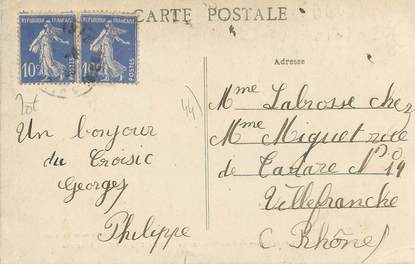 CARTE POSTALE
REPUBLIQUE FRANÇAISE REPUBLIQUE FRANÇAISE
10c POSTES 10c POSTES
Adresse
44)
Un bonjour
du Croisic
Georges
Philippe
Mme Labrosse chez
Mme Miguet rue
de Tarare No 19
Villefranche
(Rhône)